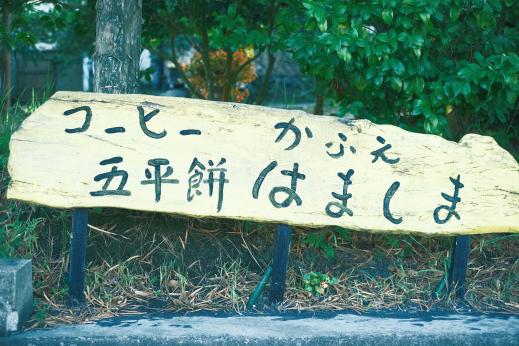 コーヒー かふぇ
五平餅 はましま